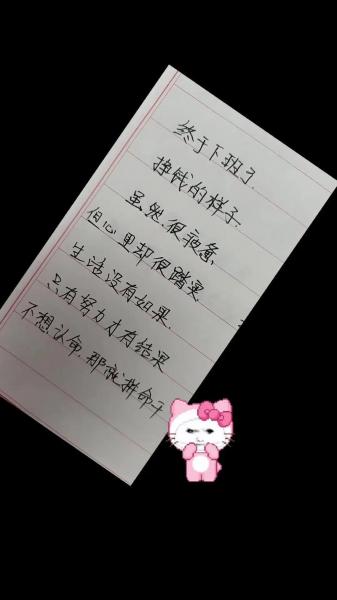 终于下班了.
挣钱的样子.
虽然很疲惫.
但心里却很踏实.
生活没有如果.
只有努力才有结果
不想认命.那就拼命干